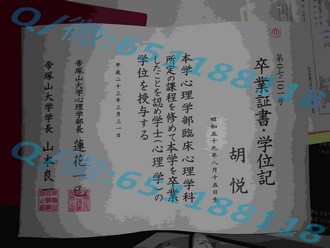 卒業証書・学位記
胡 悦
昭和五十九年八月十五日生
本学心理学部臨床心理学科
所定の課程を修めて本学を卒業
したことを認め学士(心理学)の
学位を授与する
平成二十三年三月
帝塚山大学心理学部長 蓮花一己
帝塚山大学学長 山本良一
Q/微:654188118
Q/微:654188118
Q/微:654188118